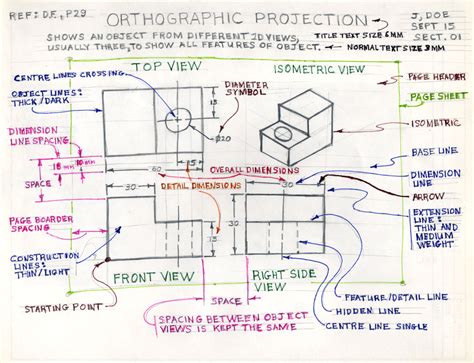 REF: D.F., P29
ORTHOGRAPHIC PROJECTION
J, DOE
SEPT 15
SECT. 01
SHOWS AN OBJECT FROM DIFFERENT 2D VIEWS,
TITLE TEXT SIZE 6MM
USUALLY THREE, TO SHOW ALL FEATURES OF OBJECT.
NORMAL TEXT SIZE 3MM
TOP VIEW
ISOMETRIC VIEW
CENTRE LINES CROSSING
OBJECT LINES:
THICK/DARK
DIAMETER
SYMBOL
PAGE HEADER
PAGE SHEET
DIMENSION
LINE SPACING
15
⌀20
ISOMETRIC
10
MM
MM
60
15
OVERALL DIMENSIONS
BASE LINE
SPACE
DETAIL DIMENSIONS
DIMENSION
LINE
30
30
ARROW
PAGE BOARDER
SPACING
30
15
EXTENSION
LINE:
THIN AND
MEDIUM
WEIGHT
CONSTRUCTION
LINES:
THIN/LIGHT
FRONT VIEW
RIGHT SIDE
VIEW
STARTING POINT
SPACE
FEATURE/DETAIL LINE
HIDDEN LINE
CENTRE LINE SINGLE
SPACING BETWEEN OBJECT
VIEWS IS KEPT THE SAME